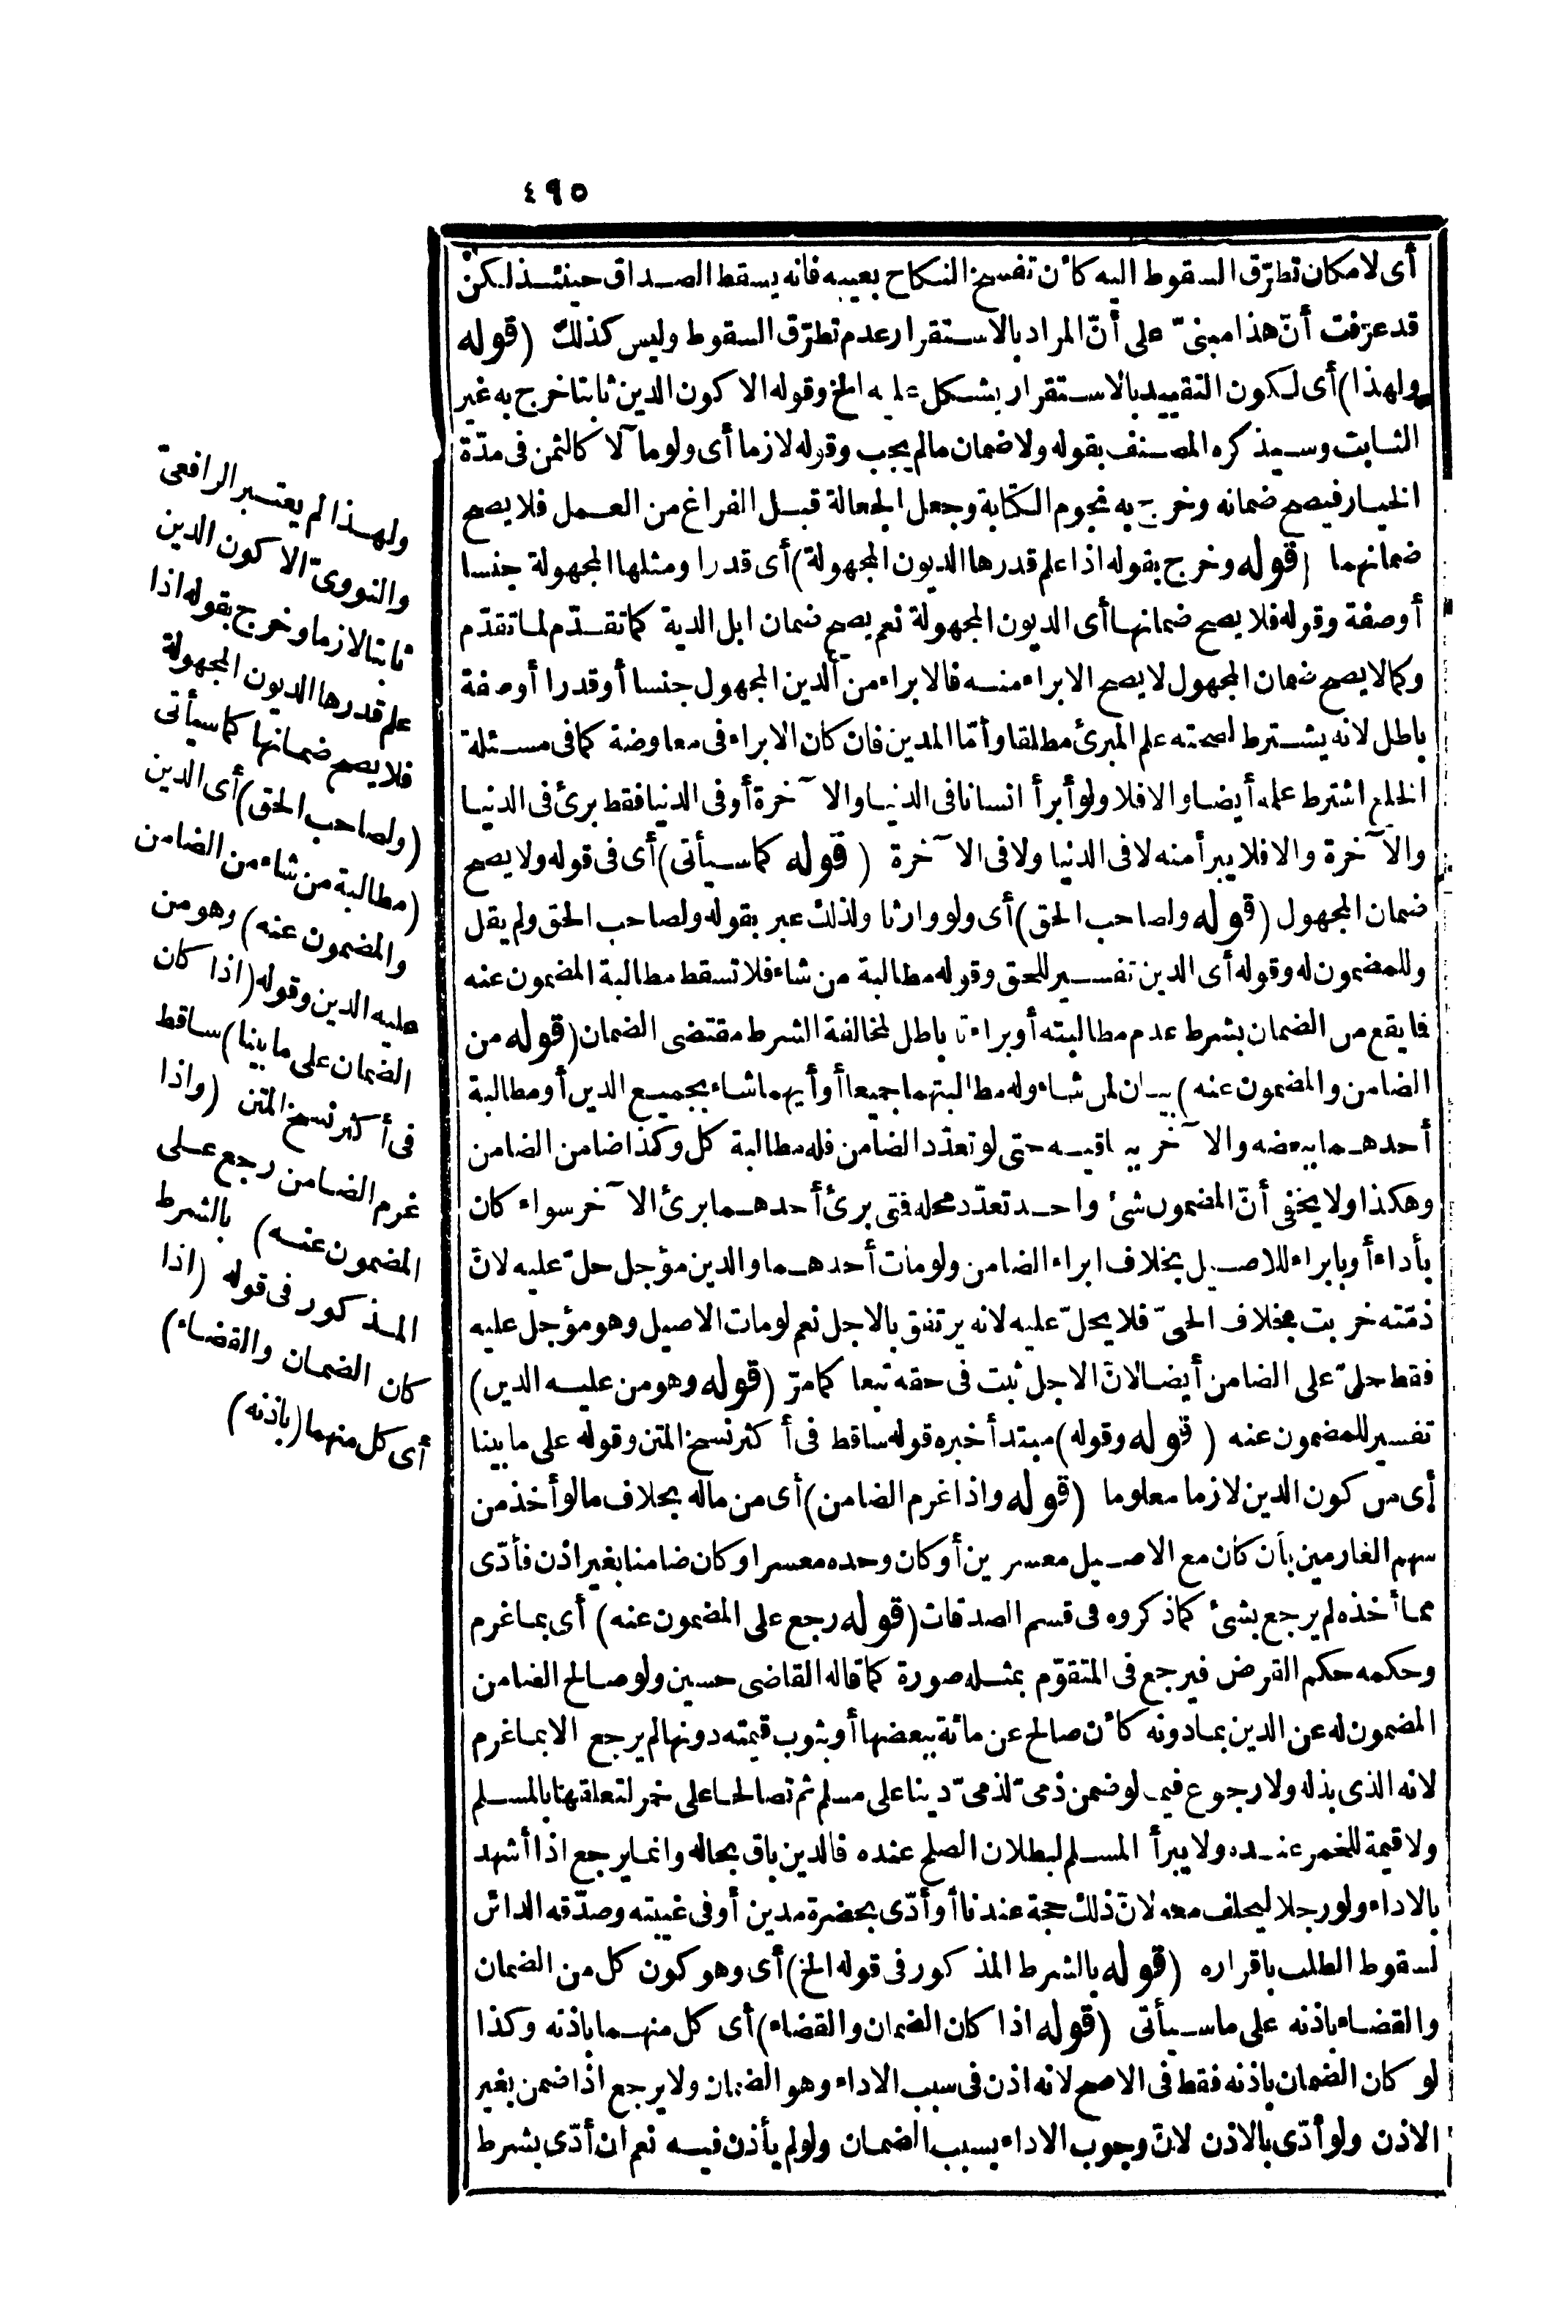 ٤٩٥
أى لامكان تطرّق السقوط اليه كأن تفسخ النكاح بعيبه فانه يسقط الصداق حينئذ لكن
قد عرفت أنّ هذا مبنىّ على أنّ المراد بالاستقرار عدم تطرّق السقوط وليس كذلك (قوله
ولهذا) أى لكون التقييد بالاستقرار يشكل عليه الخ وقوله الا كون الدين ثابتا خرج به غير
الثابت وسيذكره المصنف بقوله ولا ضمان مالم يجب وقوله لازما أى ولو مآلا كالثمن فى مدّة
الخيار فيصح ضمانه وخرج به نجوم الكتابة وجعل الجعالة قبل الفراغ من العمل فلا يصح
ضمانهما (قوله وخرج بقوله اذا علم قدرها الديون المجهولة) أى قدرا ومثلها المجهولة جنسا
أوصفة وقوله فلا يصح ضمانها أى الديون المجهولة نعم يصح ضمان ابل الدية كما تقدّم لما تقدّم
وكما لا يصح ضمان المجهول لا يصح الابراء منه فالابراء من الدين المجهول جنسا أوقدرا أوصفة
باطل لانه يشترط لصحته علم المبرئ مطلقا وأمّا المدين فان كان الابراء فى معاوضة كما فى مسئلة
الخلع اشترط علمه أيضا والا فلا ولو أبرأ انسانا فى الدنيا والآخرة أوفى الدنيا فقط برئ فى الدنيا
والآخرة والا فلا يبرأ منه لا فى الدنيا ولا فى الآخرة (قوله كما سيأتى) أى فى قوله ولا يصح
ضمان المجهول (قوله ولصاحب الحق) أى ولو وارثا ولذلك عبر بقوله ولصاحب الحق ولم يقل
وللمضمون له وقوله أى الدين تفسير للحق وقوله مطالبة من شاء فلا تسقط مطالبة المضمون عنه
فما يقع من الضمان بشرط عدم مطالبته أو براءته باطل لمخالفة الشرط مقتضى الضمان (قوله من
الضامن والمضمون عنه) بيان لمن شاء وله مطالبتهما جميعا أو أيهما شاء بجميع الدين أو مطالبة
أحدهما ببعضه والآخر بباقيه حتى لو تعدّد الضامن فله مطالبة كل وكذا ضامن الضامن
وهكذا ولا يخفى أنّ المضمون شئ واحد تعدّد محله فمتى برئ أحدهما برئ الآخر سواء كان
بأداء أو بابراء للاصيل بخلاف ابراء الضامن ولومات أحدهما والدين مؤجل حلّ عليه لانّ
ذمّته خربت بخلاف الحىّ فلا يحلّ عليه لانه يرتفق بالاجل نعم لومات الاصيل وهو مؤجل عليه
فقط حلّ على الضامن أيضا لانّ الاجل ثبت فى حقه تبعا كما مرّ (قوله وهو من عليه الدين)
تفسير للمضمون عنه (قوله وقوله) مبتدأ خبره قوله ساقط فى أكثر نسخ المتن وقوله على مابينا
أى من كون الدين لازما معلوما (قوله واذا غرم الضامن) أى من ماله بخلاف مالو أخذ من
سهم الغارمين بأن كان مع الاصيل معسرين أو كان وحده معسرا وكان ضامنا بغير اذن فأدّى
مما أخذه لم يرجع بشئ كما ذكروه فى قسم الصدقات (قوله رجع على المضمون عنه) أى بما غرم
وحكمه حكم القرض فيرجع فى المتقوّم بمثله صورة كما قاله القاضى حسين ولو صالح الضامن
المضمون له عن الدين بما دونه كأن صالح عن مائة ببعضها أو بثوب قيمته دونها لم يرجع الا بما غرم
لانه الذى بذله ولا رجوع فيما لو ضمن ذمىّ لذمىّ دينا على مسلم ثم تصالحا على خمر لتعلقها بالمسلم
ولا قيمة للخمر عنده ولا يبرأ المسلم لبطلان الصلح عنده فالدين باق بحاله وانما يرجع اذا أشهد
بالاداء ولو رجلا ليحلف معه لانّ ذلك حجة عندنا أو أدّى بحضرة مدين أو فى غيبته وصدّقه الدائن
لسقوط الطلب باقراره (قوله بالشرط المذكور فى قوله الخ) أى وهو كون كل من الضمان
والقضاء باذنه على ماسيأتى (قوله اذا كان الضمان والقضاء) أى كل منهما باذنه وكذا
لو كان الضمان باذنه فقط فى الاصح لانه اذن فى سبب الاداء وهو الضمان ولا يرجع اذا ضمن بغير
الاذن ولو أدّى بالاذن لانّ وجوب الاداء بسبب الضمان ولو لم يأذن فيه نعم ان أدّى بشرط
ولهذا لم يعتبر الرافعىّ
والنووىّ الا كون الدين
ثابتا لازما وخرج بقوله اذا
علم قدرها الديون المجهولة
فلا يصح ضمانها كما سيأتى
(ولصاحب الحق) أى الدين
(مطالبة من شاء من الضامن
والمضمون عنه) وهو من
عليه الدين وقوله (اذا كان
الضمان على مابينا) ساقط
فى أكثر نسخ المتن (واذا
غرم الضامن رجع على
المضمون عنه) بالشرط
المذكور فى قوله (اذا
كان الضمان والقضاء)
أى كل منهما (باذنه)